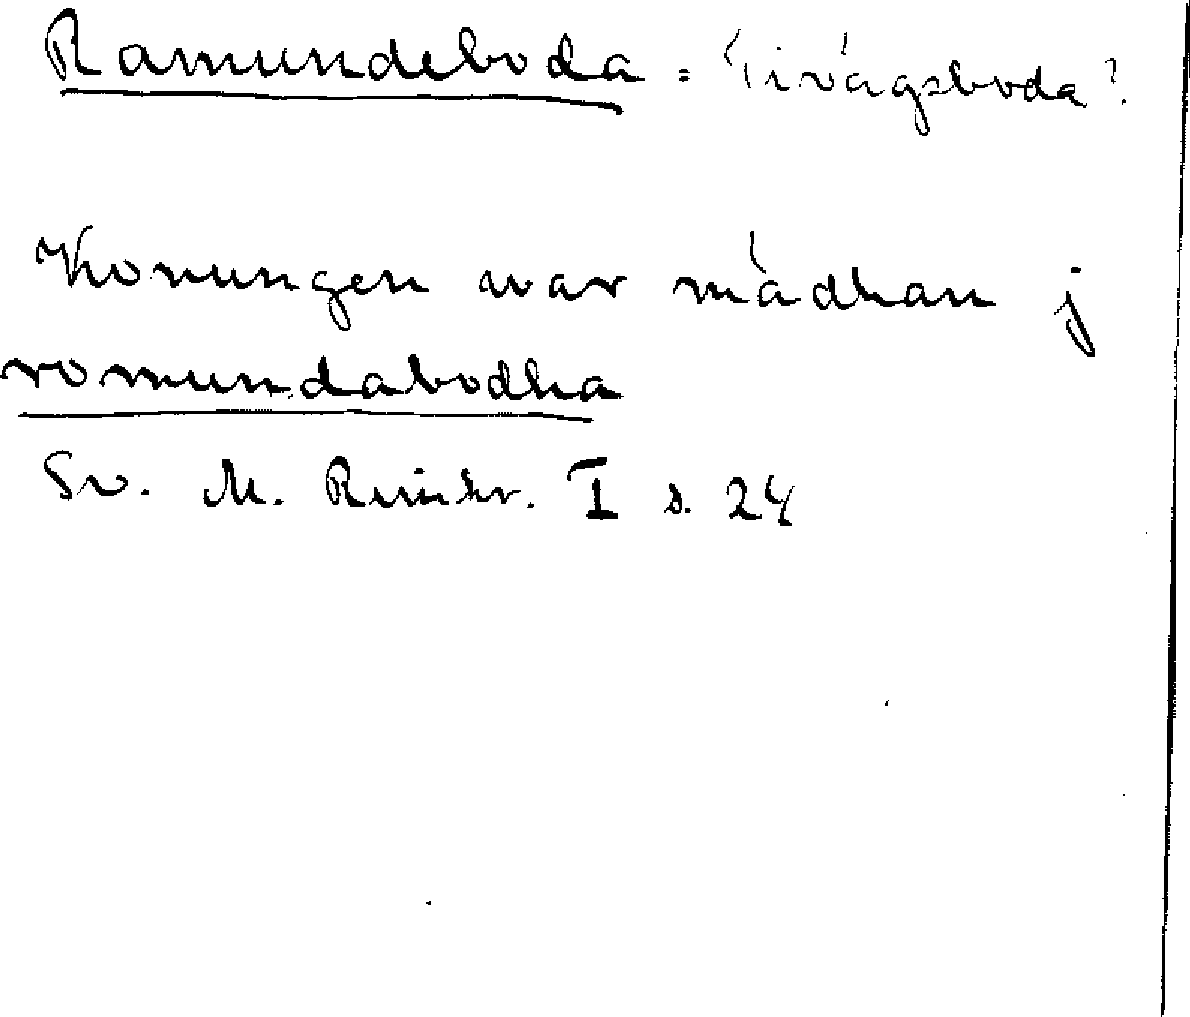 Ramundeboda = Tivägsboda?
Konungen war mädhan j
romundabodha
Sv. M. Rimkr. I s. 24